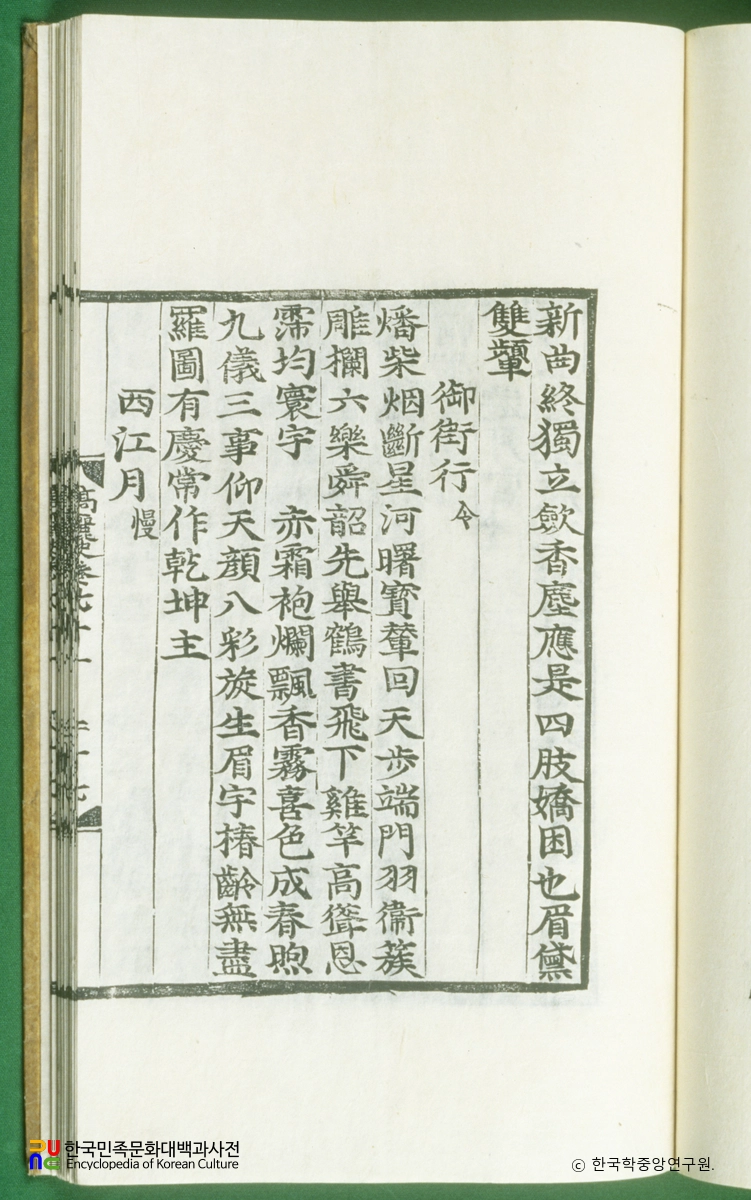 新曲終獨立歛香塵應是四肢嬌困也眉黛
雙顰
御街行 令
燔柴烟斷星河曙寳輦回天步端門羽衞簇
雕欄六樂舜韶先舉鶴書飛下雞竿高聳恩
霈均寰宇 赤霜袍爛飄香霧喜色成春煦
九儀三事仰天顔八彩旋生眉宇椿齡無盡
羅圖有慶常作乾坤主
西江月 慢
高麗史卷七十一 二十七
한국민족문화대백과사전
Encyclopedia of Korean Culture
© 한국학중앙연구원.